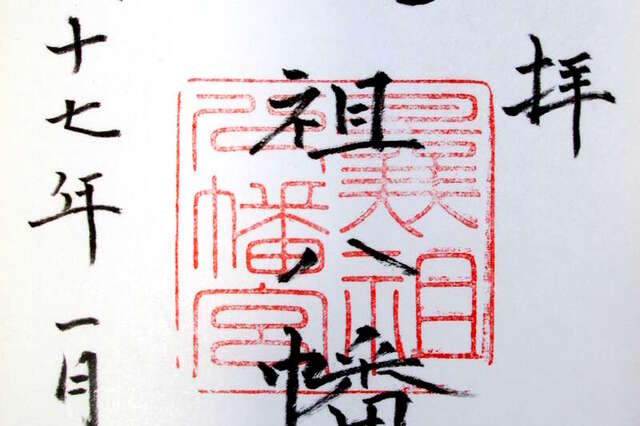 拝
祖八幡
曩祖
八幡宮
十七年一月